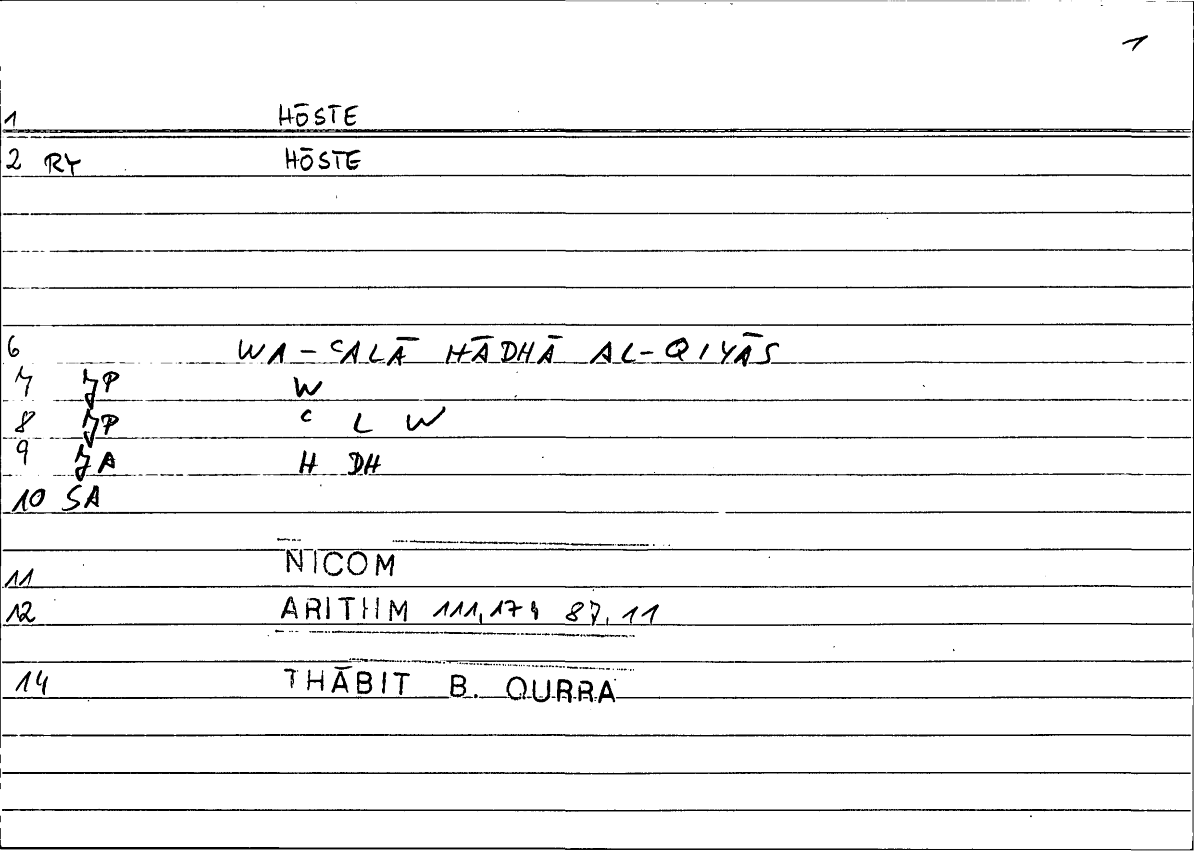 1
1 HŌSTE
2 RY HŌSTE
6 WA-ᶜALĀ HĀDHĀ AL-QIYĀS
7 JP W
8 JP ᶜ L W
9 JA H DH
10 SA
11 NICOM
12 ARITHM 111,17; 87,11
14 THĀBIT B. QURRA